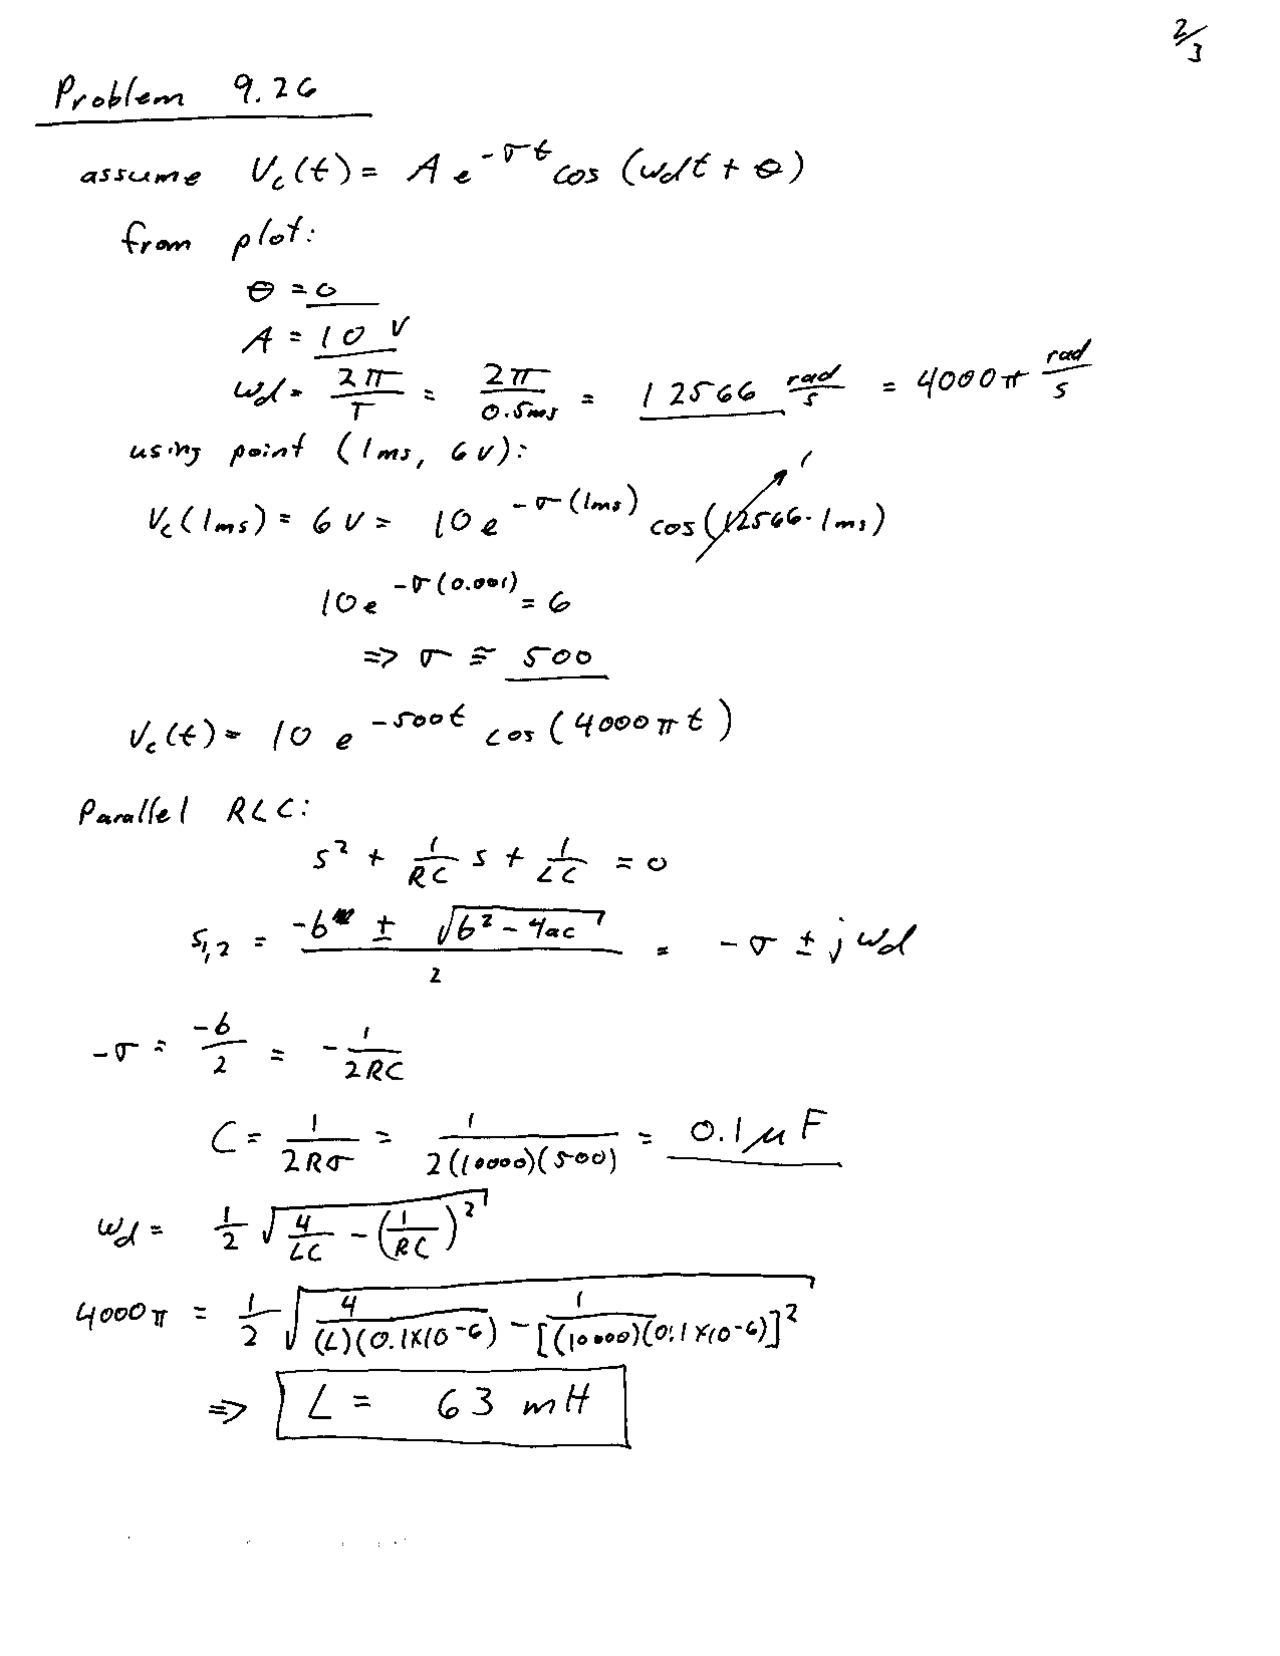 2/3
Problem 9.26
assume Vc(t) = A e^-σt cos (ωdt + θ)
from plot:
θ = 0
A = 10 V
ωd = 2π/T = 2π/0.5ms = 12566 rad/s = 4000π rad/s
using point (1ms, 6V):
Vc(1ms) = 6V = 10e^-σ(1ms) cos(12566·1ms) 1
10e^-σ(0.001) = 6
=> σ ≅ 500
Vc(t) = 10 e^-500t cos(4000πt)
Parallel RLC:
s² + 1/RC s + 1/LC = 0
s1,2 = -b ± √b² - 4ac / 2 = -σ ± jωd
-σ = -b/2 = -1/2RC
C = 1/2Rσ = 1/2(10000)(500) = 0.1μF
ωd = 1/2 √4/LC - (1/RC)²
4000π = 1/2 √4/(L)(0.1×10^-6) - 1/[(10000)(0.1×10^-6)]²
=> L = 63 mH